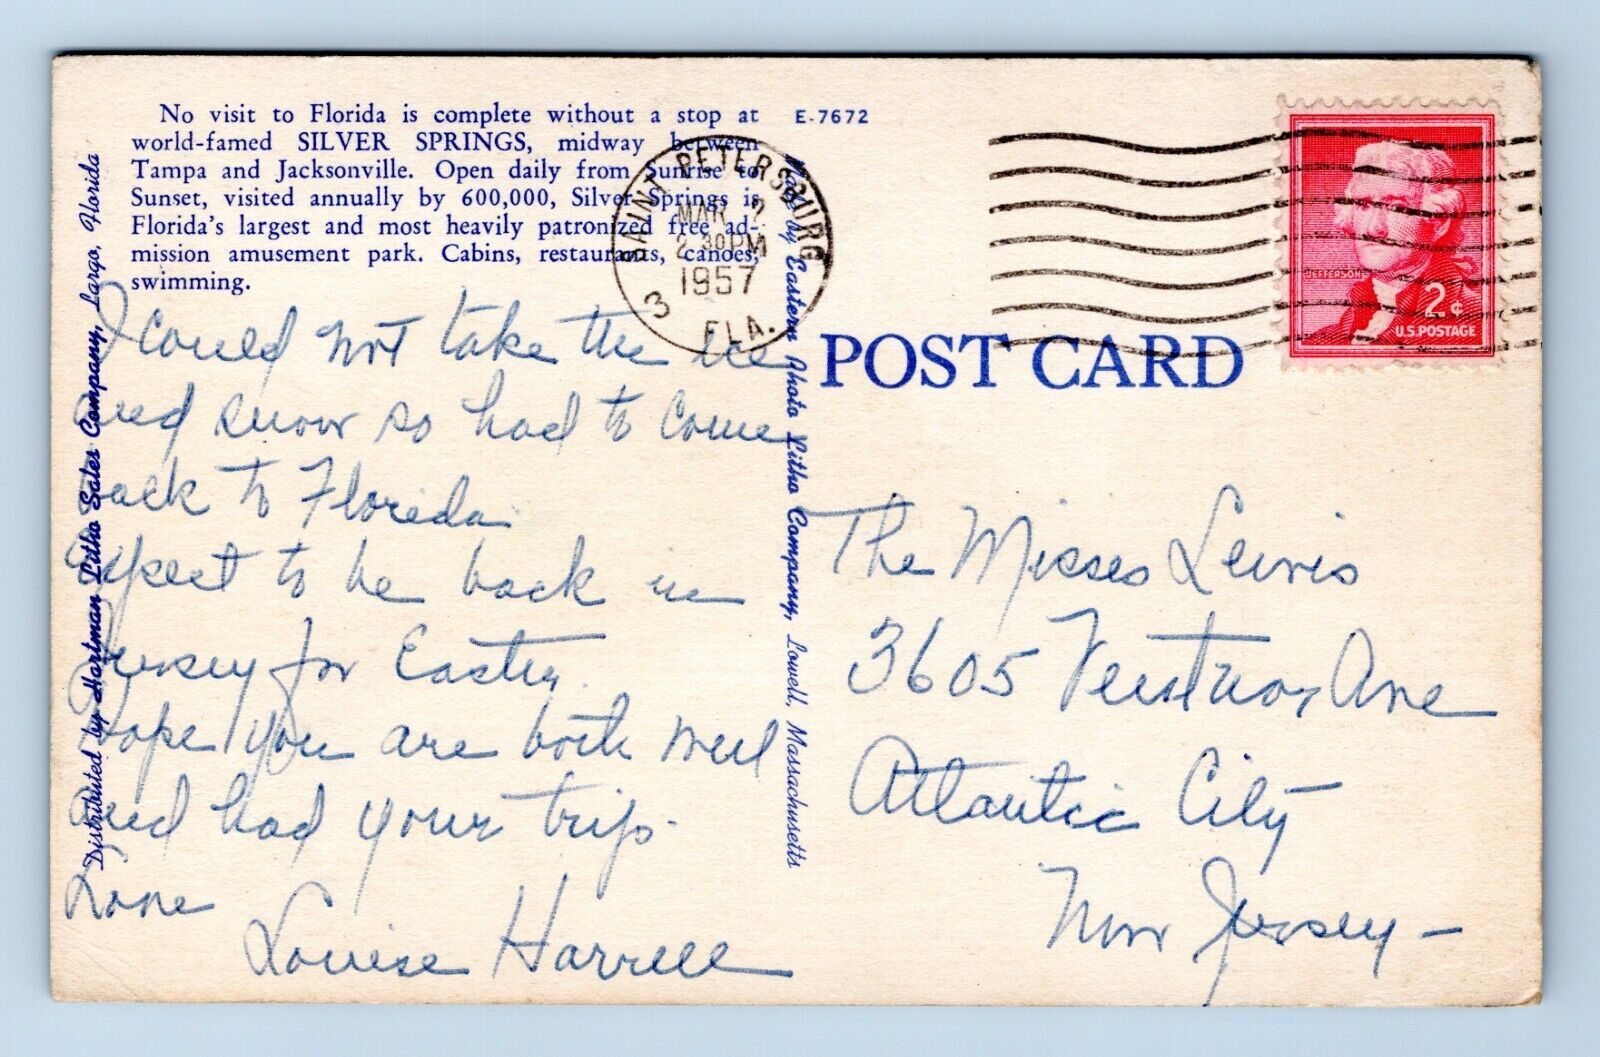 No visit to Florida is complete without a stop at
world-famed SILVER SPRINGS, midway between
Tampa and Jacksonville. Open daily from Sunrise to
Sunset, visited annually by 600,000, Silver Springs is
Florida's largest and most heavily patronized free ad-
mission amusement park. Cabins, restaurants, canoes,
swimming.
E-7672
SAINT PETERSBURG
MAR 2
2 30 PM
1957
3
FLA.
JEFFERSON
2¢
U.S. POSTAGE
POST CARD
Distributed by Hartman Litho Sales Company, Largo, Florida
Made by Eastern Photo Litho Company, Lowell, Massachusetts
I could not take the ice
and snow so had to come
back to Florida.
Expect to be back in
Jersey for Easter.
Hope you are both well
and had your trip.
Love
Louise Harrell
The Misses Lewis
3605 Ventnor Ave
Atlantic City
New Jersey -